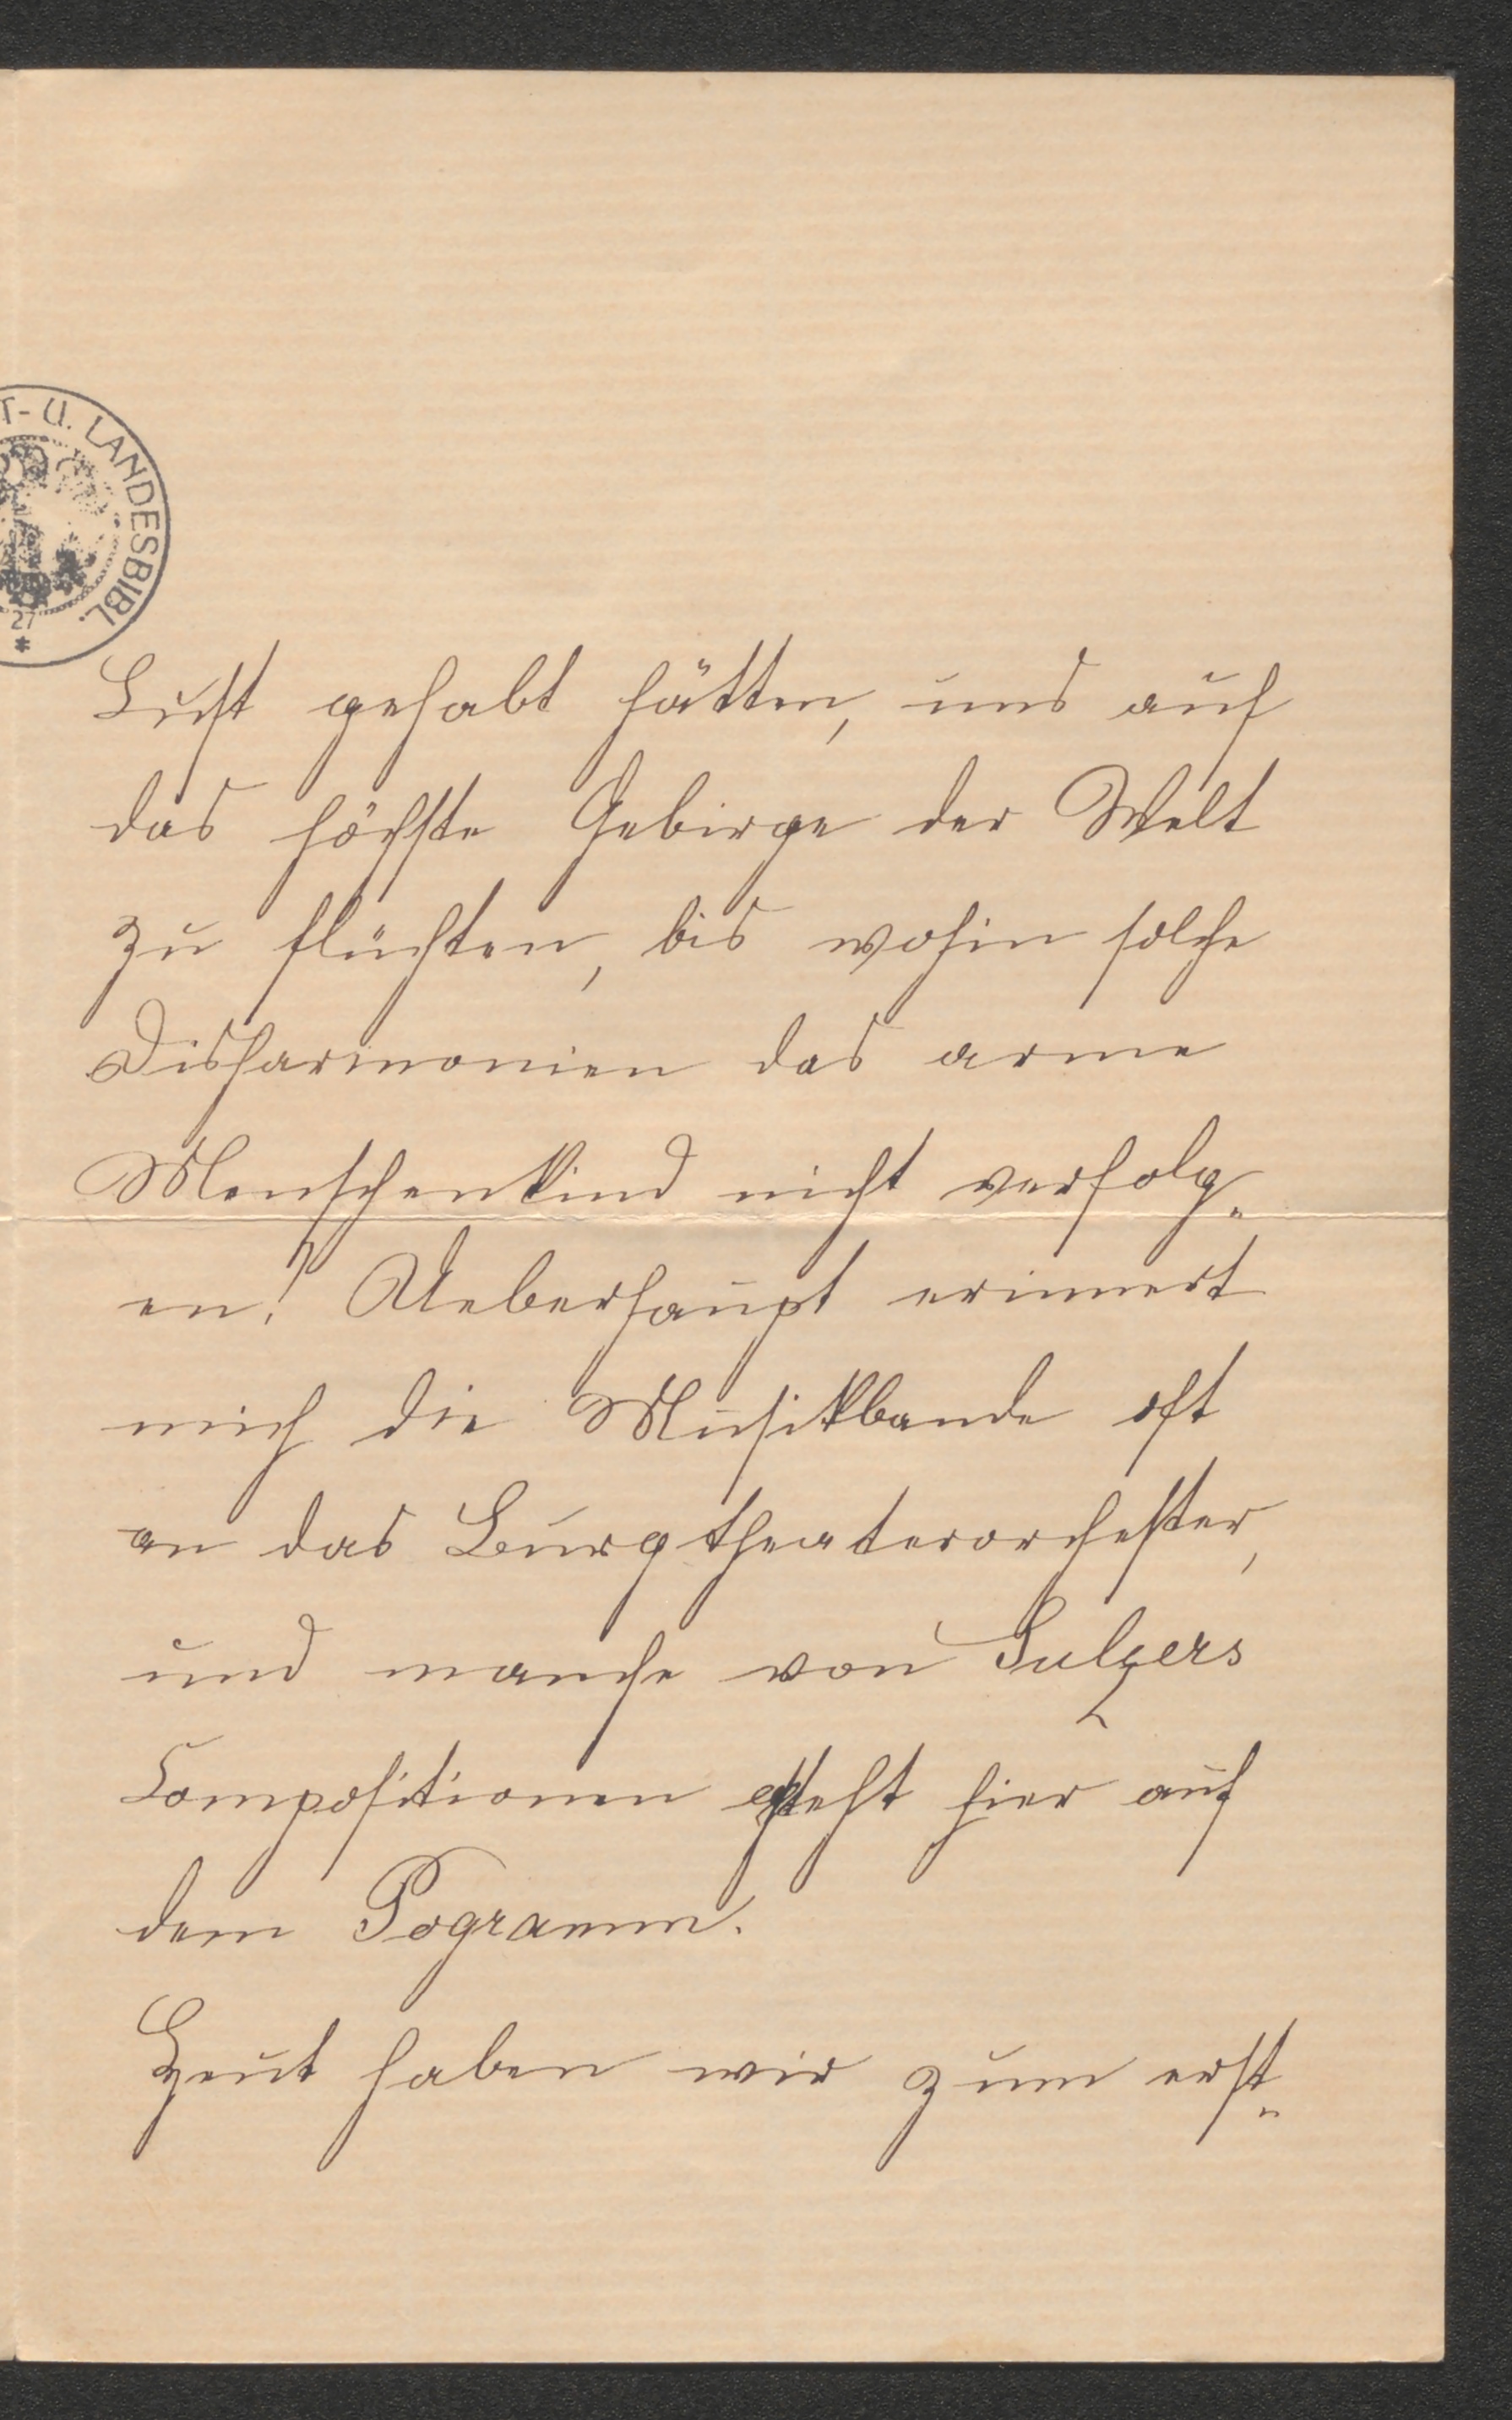 T- U. LANDESBIBL.
27
*
Lust gehabt hätten, uns auf
das höchste Gebirge der Welt
zu flüchten, bis wohin solche
Disharmonien das arme
Menschenkind nicht verfolg„
en! Ueberhaupt erinnert
mich die Musikbande oft
an das Burgtheaterorchester,
und manche von Sulzers
Compositionen steht hier auf
dem Pogramm.
Heut haben wir zum erst„